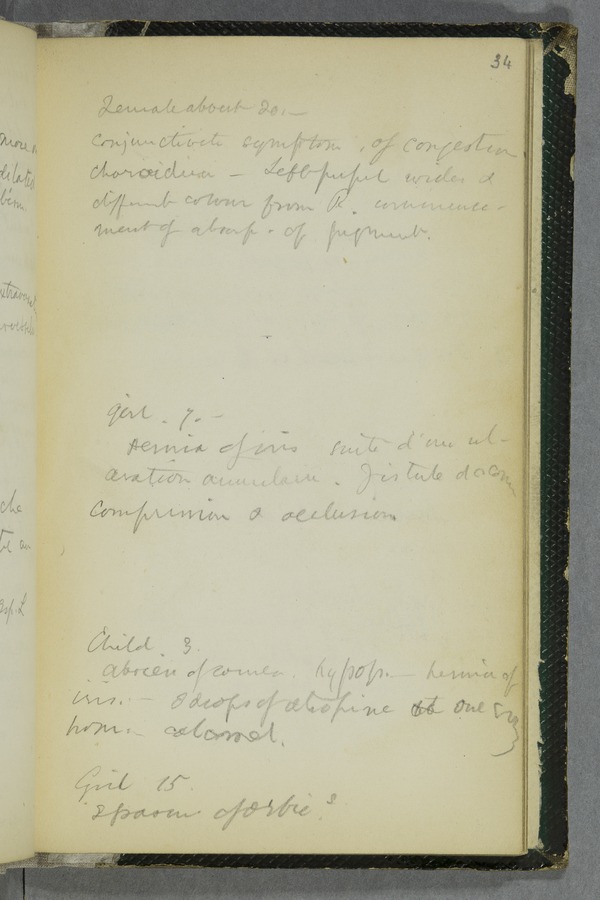 34
Female about 20.—
conjunctivitis symptom. of congestion
choroidien — Left pupil wider &
different colour from R. commence-
ment of absorp. of pigment.
Girl. 7.—
Hernia of iris suite d'une ul-
ceration annulaire. Fistule de corn
compression & occlusion
Child. 3.
abscess of cornea. hypop.— hernia of
iris.— drops of atropine one
calomel.
Girl 15.
Spasm of orbic.